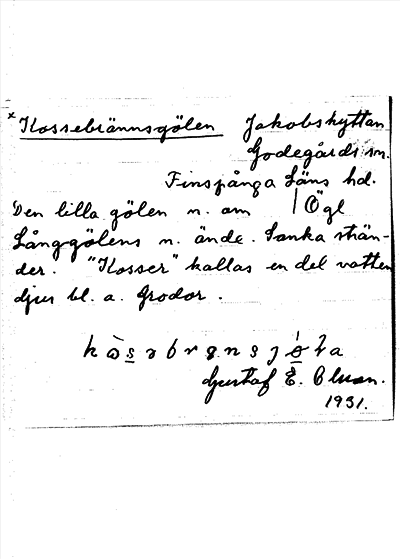 × Kossebrännsgölen Jakobshyttan
Godegårds sn.
Finspånga Läns hd.
Den lilla gölen n. om | Ögl
Långgölens n. ände. Sanka strän-
der. "Kosser" kallas en del vatten
djur bl. a. Grodor.
Gustaf E. Olsson.
1931.